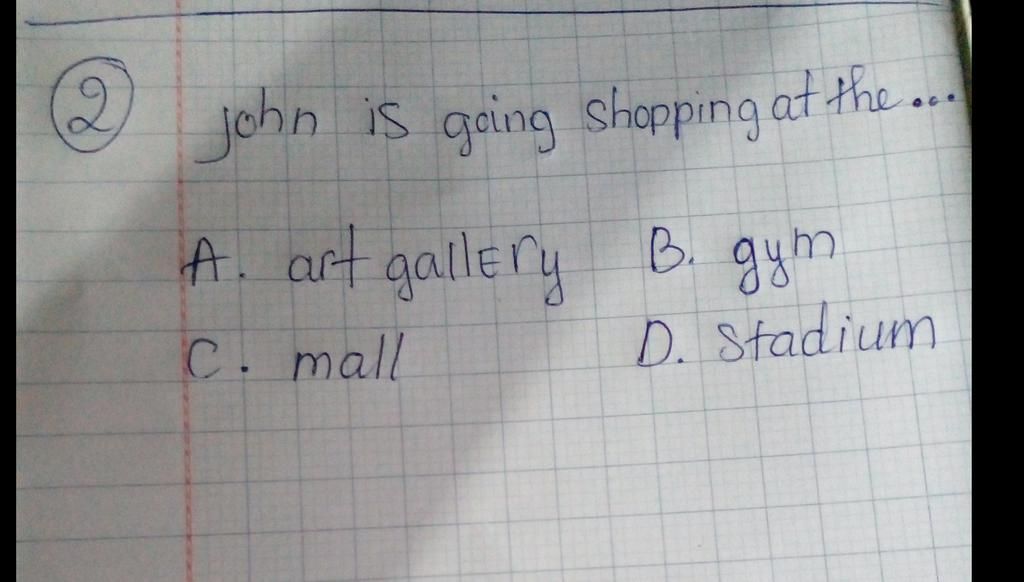 2 john is going shopping at the...
A. art gallery B. gym
C. mall D. stadium